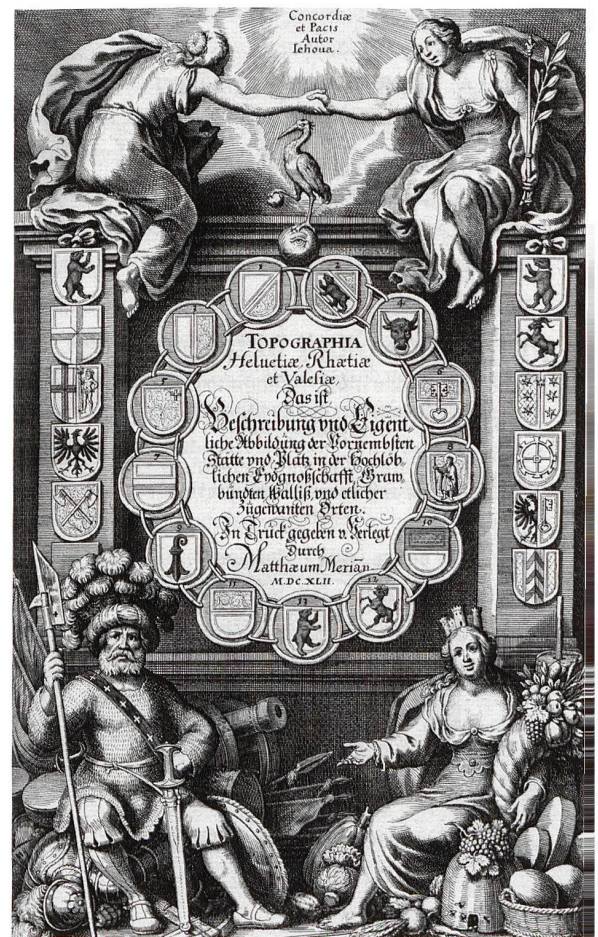 Concordiæ
et Pacis
Autor
Iehoua.
1
2
3
4
5
6
7
8
9
10
11
12
13
TOPOGRAPHIA
Helvetiæ, Rhætiæ
et Valesiæ,
Das ist
Beschreibung vnd Eigent
liche Abbildung der Vornembsten
Stätte vnd Plätz in der Hochlöb
lichen Eydgnoßschafft, Graw
bündten Walliß, vnd etlicher
Zugewanten Orten.
In Truck gegeben v. Verlegt
Durch
Matthæum Merian
M.DC.XLII.